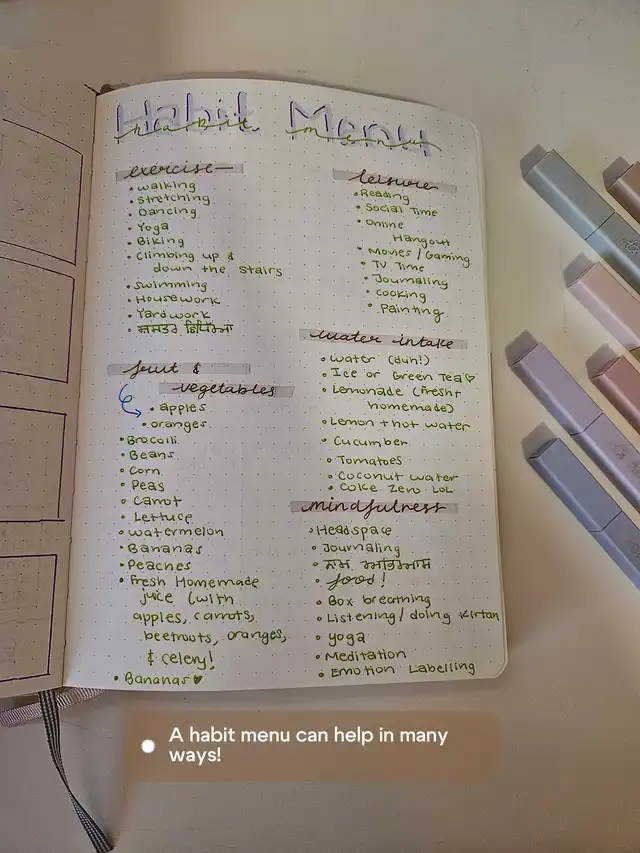 Habit Menu
habit menu
exercise
• Walking
• Stretching
• Dancing
• Yoga
• Biking
• Climbing up &
down the stairs
• Swimming
• Housework
• Yardwork
fruit &
vegetables
• apples
• oranges
• Brocolli
• Beans
• Corn
• Peas
• Carrot
• Lettuce
• Watermelon
• Bananas
• Peaches
• Fresh Homemade
juice (with
apples, carrots,
beetroots, oranges,
& celery!
• Bananas ♥
leisure
• Reading
• Social Time
• Online
Hangout
• Movies / Gaming
• TV Time
• Journaling
• Cooking
• Painting
water intake
• Water (duh!)
• Ice or Green Tea ♡
• Lemonade (Fresh +
homemade)
• Lemon + hot water
• Cucumber
• Tomatoes
• Coconut water
• Coke Zero LOL
mindfulness
• Headspace
• Journaling
• ਨਾਮ ਅਭਿਆਸ
• food!
• Box breathing
• Listening / doing Kirtan
• yoga
• Meditation
• Emotion Labelling
A habit menu can help in many
ways!